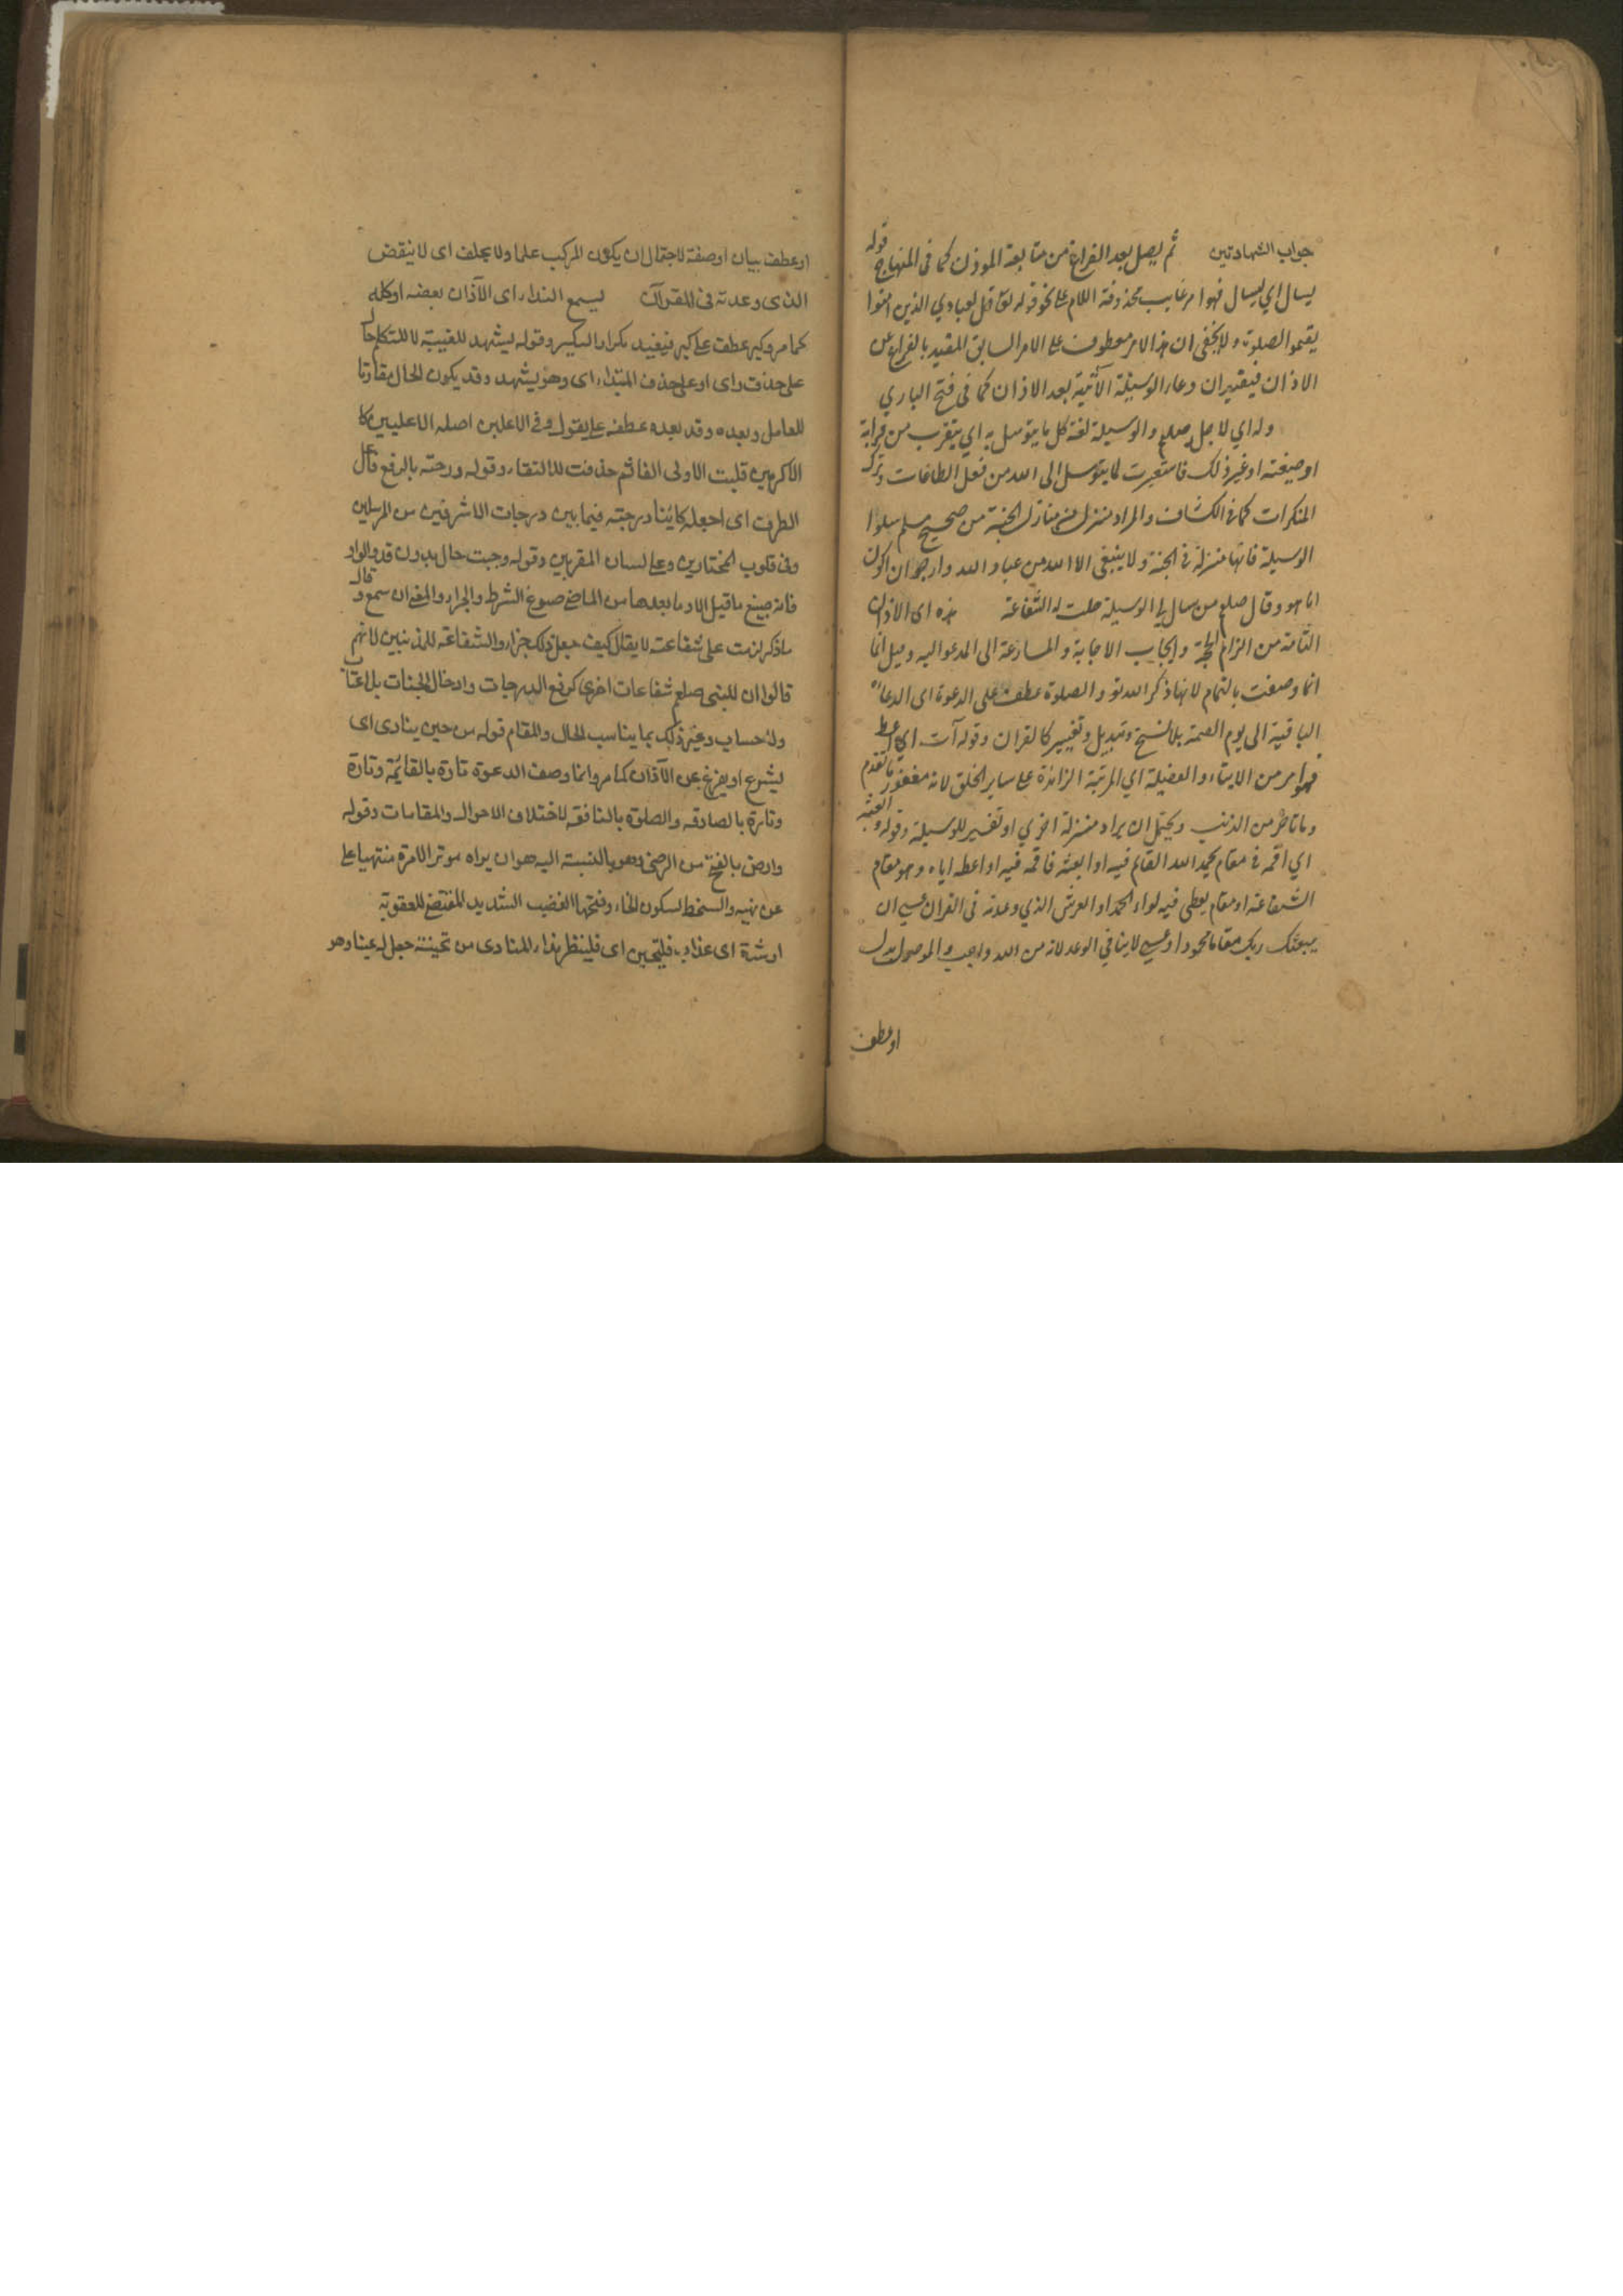 جواب الشهادتين ثم ليصل بعد الفراغ من متابعة الموذن كما فى المنهاج قوله
يسال اي ليسال فهو امر غايب محذوفة اللام على نحو قوله تع قل لعبادي الذين امنوا
يقيموا الصلوة ولا يخفى ان هذا الامر معطوف على الامر السابق المقيد بالفراغ عن
الاذان فيقتيران دعاء الوسيلة الآتية بعد الاذان كما فى فتح الباري
وله اي لاجله صلعم والوسيلة لغة كل ما يتوسل به اي يتقرب من قرابة
او صيغته او غير ذلك فاستعيرت لما يتوسل الى الله من فعل الطاعات وترك
المنكرات كما فى الكشاف والمراد منزل من منازل الجنة من صحيح مسلم سلوا
الوسيلة فانها منزلة فى الجنة ولا ينبغى الا لعبد من عباد الله وارجو ان اكون
انا هو وقال صلعم من سال لى الوسيلة حلت له الشفاعة هذه اى الاذان
التامة من الزام الحجة وايجاب الاجابة والمسارعة الى المدعو اليه وقيل انما
انما وصفت بالتمام لانها ذكر الله تع والصلوة عطف على الدعوة اى الدعاء
الباقية الى يوم القيمة بلا نسخ وتبديل وتغيير كالقران وقوله آت اي اعط
فهو امر من الايتاء والفضيلة اي المرتبة الزائدة على ساير الخلق لانه مغفور ما تقدم
وما تاخر من الذنب ويحتمل ان يراد منزلة اخرى او تفسير للوسيلة وقوله وابعثه
اي اقمه فى مقام يحمد الله القائم فيه او ابعثه فاقمه فيه او اعطه اياه وهو مقام
الشفاعة او مقام يعطى فيه لواء الحمد او العرش الذي وعدته فى القران عسى ان
يبعثك ربك مقاما محمودا وعسى لا ينافي الوعد لانه من الله واجب والموصول بدل
او عطف
او عطف بيان او صفة لاحتمال ان يكون المركب علما ولا يخلف اى لا ينقض
الذى وعدته فى القرآن ليسمع النداء اى الآذان بعضه او كله
كما مر وكبر عطف على كبر فيفيد تكرار التكبير وقوله ليشهد للغيبة لا للتكلم حال
على حذف واى او على حذف المبتداء اى وهو يشهد وقد يكون الحال مقارنا
للعامل وبعده وقد بعده عطفه على يقول وفى الاعلين اصله الاعليين كما
الاكرمين قلبت الاولى الفا ثم حذفت للالتقاء وقوله ودرجته بالرفع فاعل
الظرف اى اجعله كاينا درجته فيما بين درجات الاشرفين من المرسلين
وفى قلوب المختارين وعلى لسان المقربين وقوله وجبت حال بدون قد والواو
فانه صيغ ما قبل الا وما بعدها من الماضى صوغ الشرط والجزاء والمعنى ان سمع وقال
ما ذكر لزمت على شفاعته لا يقال كيف جعل ذلك جزاء والشفاعة للمذنبين لانهم
قالوا ان للنبى صلعم شفاعات اخرى كرفع الدرجات وادخال الجنات بلا عتاب
ولا حساب وغير ذلك بما يناسب الحال والمقام قوله من حين ينادى اى
ليشرع او يفرغ عن الآذان كما مر وانما وصف الدعوة تارة بالقايمة وتارة
وتارة بالصادقه والصلوة بالنافعة لاختلاف الاحوال والمقامات وقوله
وارض بالفتح من الرضى وهو بالنسبة اليه هو ان يراه موتر الامرة منتهيا على
عن نهيه والسخط لسكون الخاء وفتحها الغضب الشديد المقتضى للعقوبة
او شدة اى عذاب فليتحين اى فلينظر نداء المنادى من تحينته جعل له عينا وهو